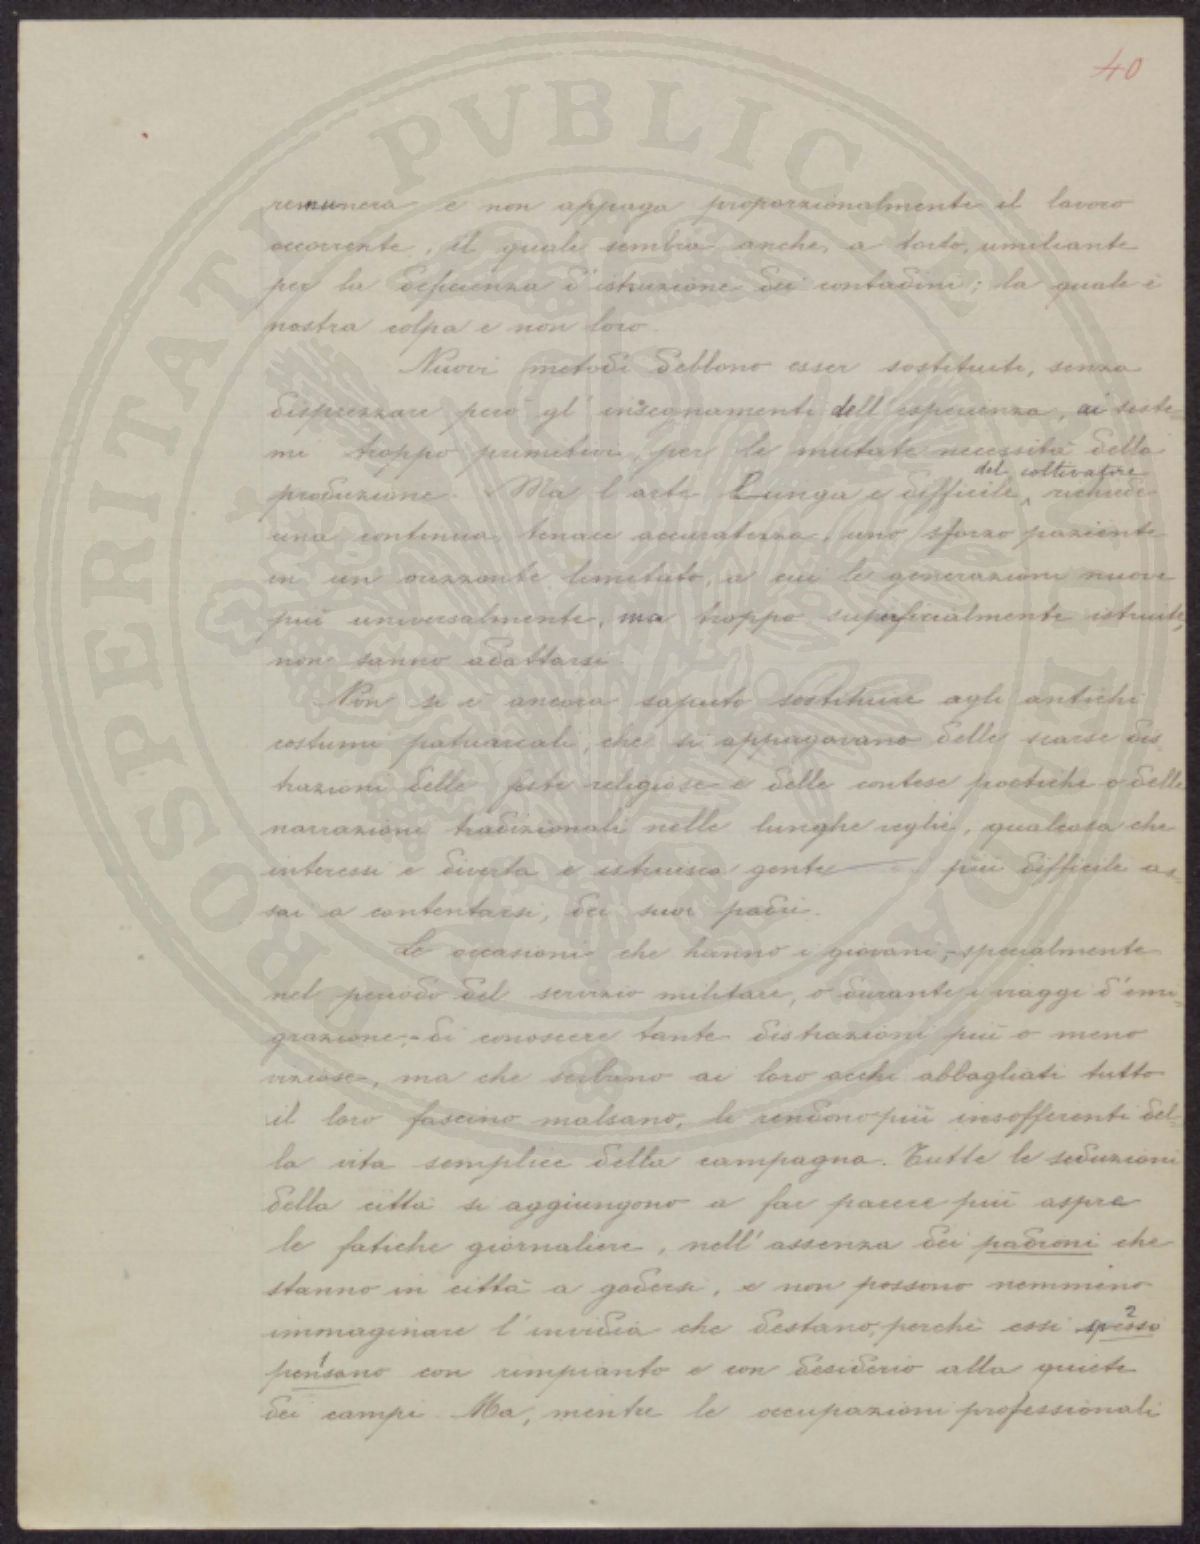 40
remunera e non appaga proporzionalmente il lavoro
occorrente, il quale sembra anche, a torto, umiliante
per la deficienza d'istruzione dei contadini; la quale è
nostra colpa e non loro.
Nuovi metodi debbono esser sostituiti, senza
disprezzare però gl'insegnamenti dell'esperienza, ai siste=
mi troppo primitivi, per le mutate necessità della
del coltivatore
produzione. Ma l'arte lunga e difficile richiede
una continua, tenace accuratezza, uno sforzo paziente
in un orizzonte limitato, a cui le generazioni nuove
più universalmente, ma troppo superficialmente istruite,
non sanno adattarsi.
Non si è ancora saputo sostituire agli antichi
costumi patriarcali, che si appagavano delle scarse dis
trazioni delle feste religiose e delle contese poetiche o delle
narrazioni tradizionali nelle lunghe veglie, qualcosa che
interessi e diverta e istruisca gente più difficile as=
sai a contentarsi, dei suoi padri.
Le occasioni che hanno i giovani, specialmente
nel periodo del servizio militare, o durante i viaggi d'emi=
grazione,- di conoscere tante distrazioni più o meno
viziose, ma che serbano ai loro occhi abbagliati tutto
il loro fascino malsano, li rendono più insofferenti del=
la vita semplice della campagna. Tutte le seduzioni
della città si aggiungono a far parere più aspre
le fatiche giornaliere, nell'assenza dei padroni che
stanno in città a godersi, e non possono nemmeno
immaginare l'invidia che destano, perchè essi spesso 2
1 pensano con rimpianto e con desiderio alla quiete
dei campi. Ma, mentre le occupazioni professionali
PROSPERITATI PVBLICAE